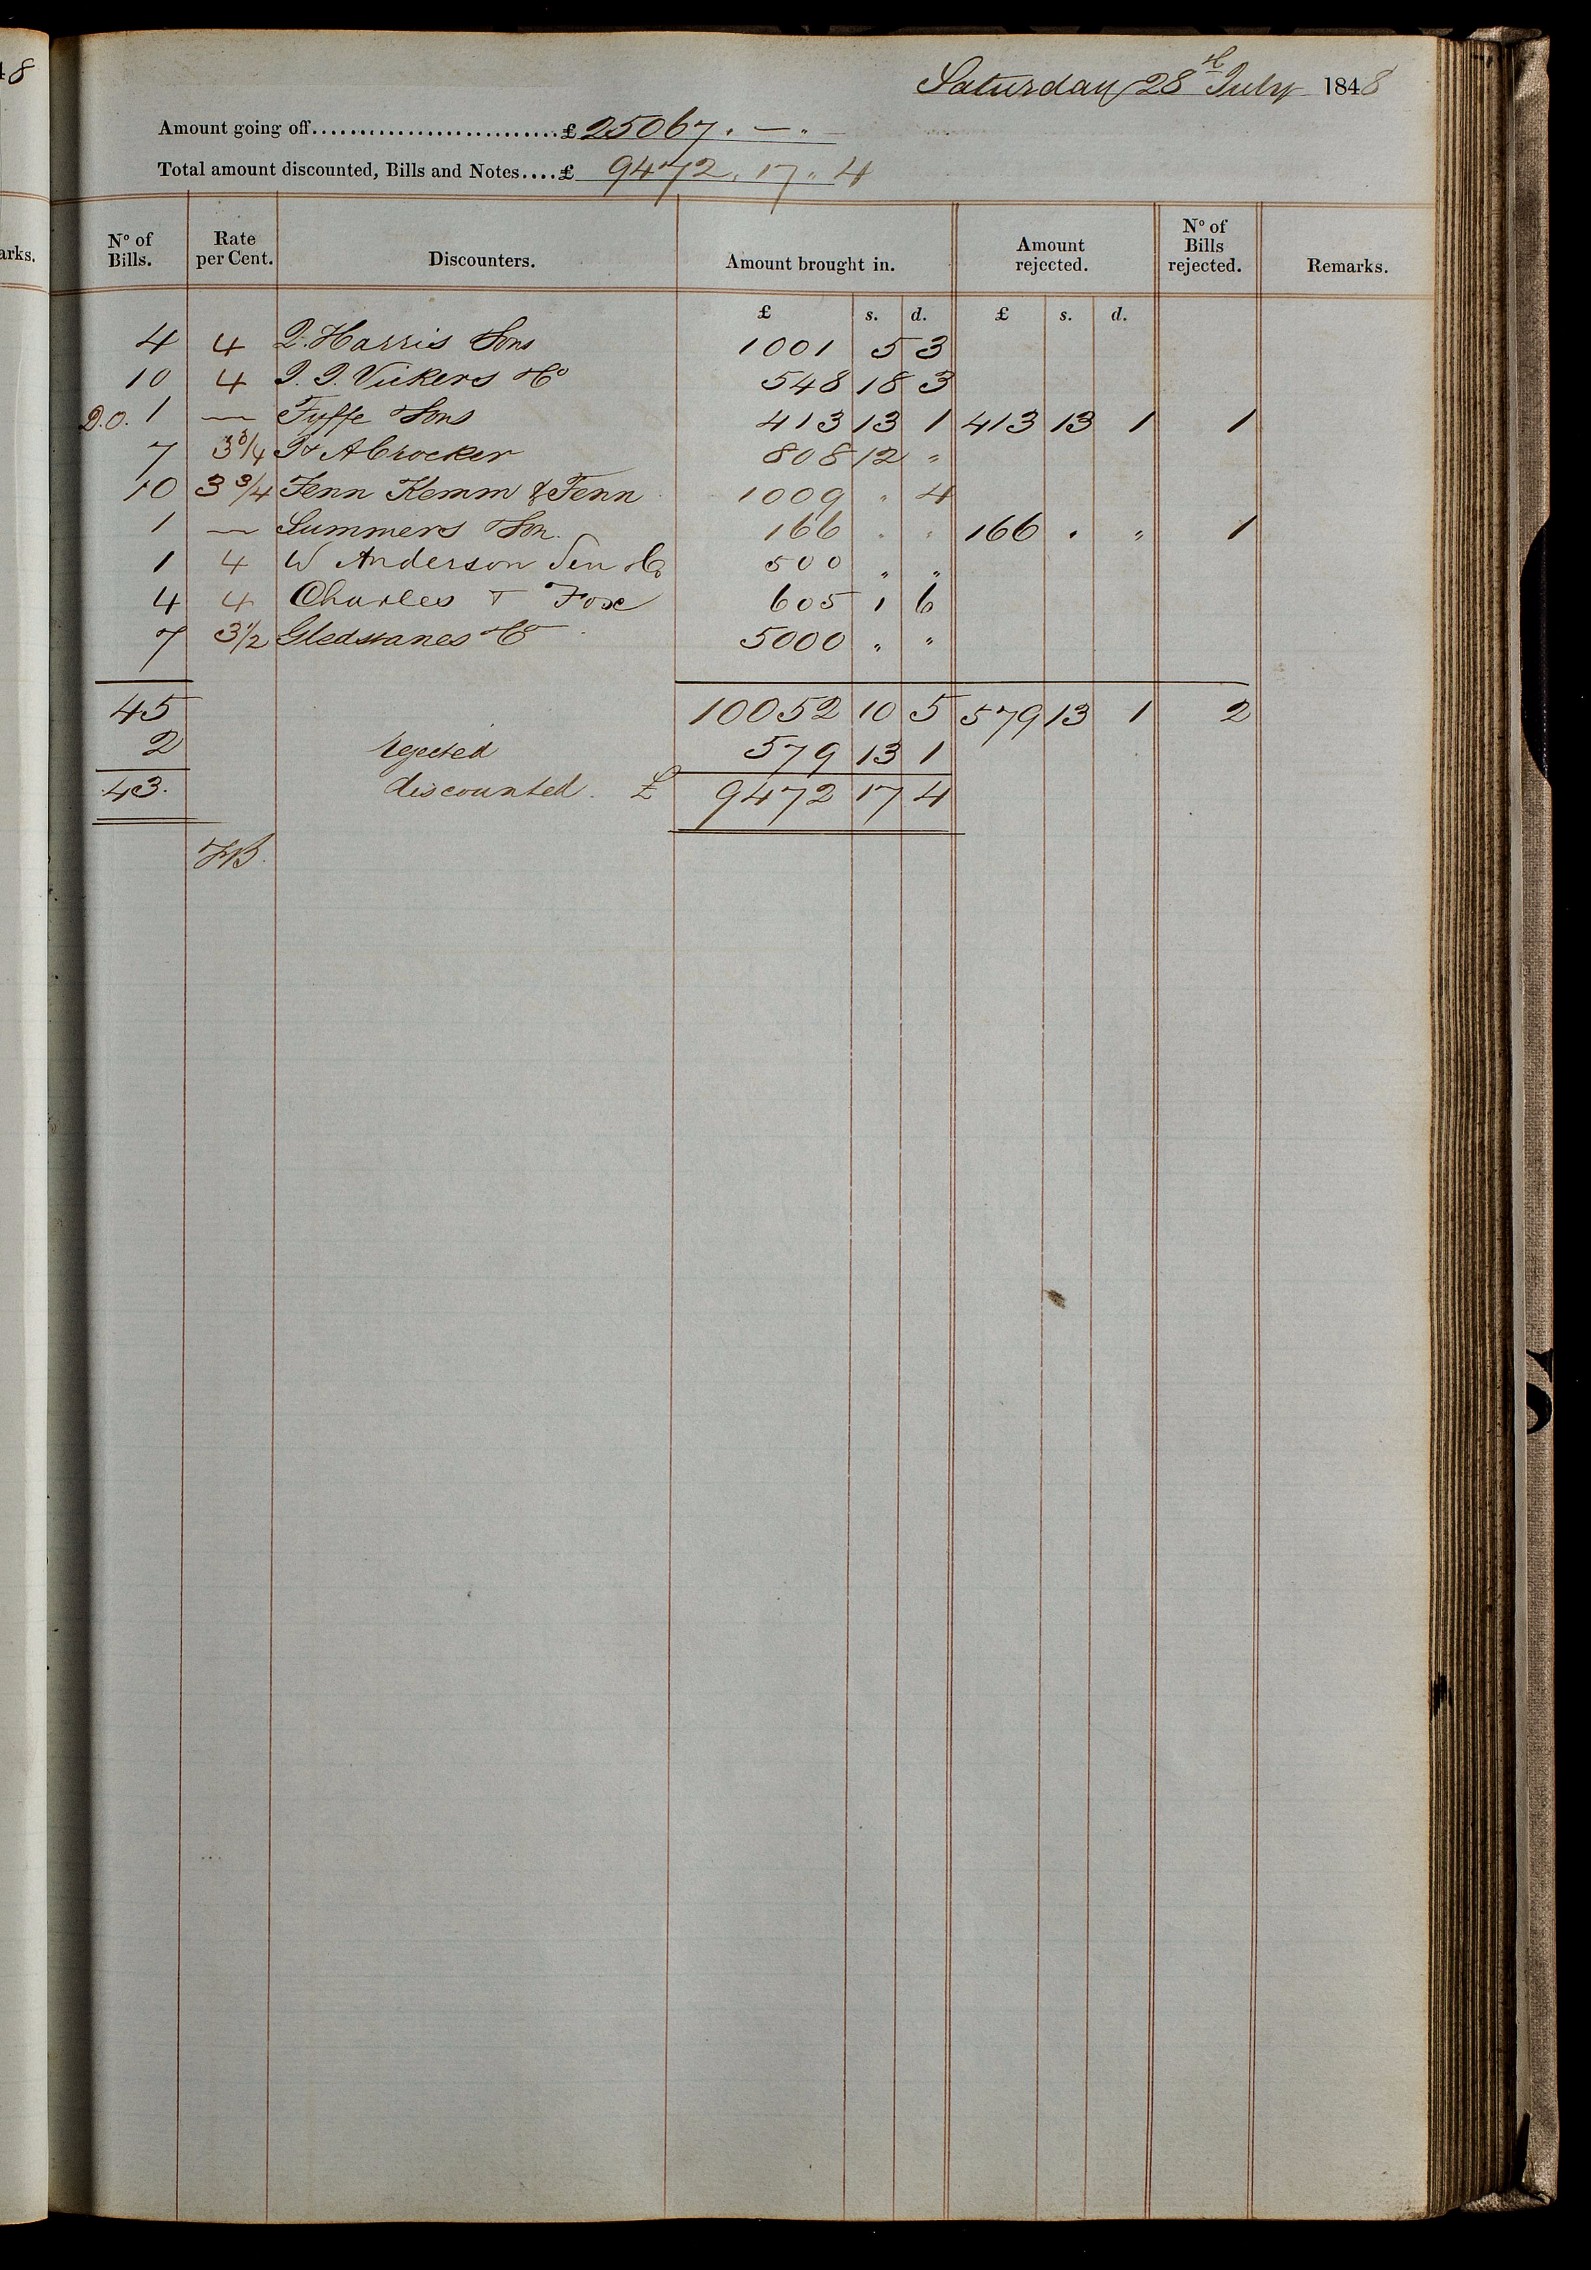 48
arks.
Saturday 28th July 1848
Amount going off..........................£ 25067 . — " —
Total amount discounted, Bills and Notes....£ 9472 . 17 " 4
No of Bills. Rate per Cent. Discounters. Amount brought in. Amount rejected. No of Bills rejected. Remarks.
£ s. d. £ s. d.
4 4 Harris Sons 1001 5 3
10 4 Vickers &Co 548 18 3
D.O. 1 — Fyffe &Sons 413 13 1 413 13 1 1
7 3 3/4 & A Crocker 808 12 "
10 3 3/4 Fenn Kemm & Fenn 1009 " 4
1 — Summers &Son. 166 " " 166 " " 1
1 4 W Anderson Sen &Co 500 " "
4 4 Charles T Fox 605 1 6
7 3 1/2 Gledstanes &Co 5000 " "
45 10052 10 5 579 13 1 2
2 rejected 579 13 1
43. discounted. £ 9472 17 4